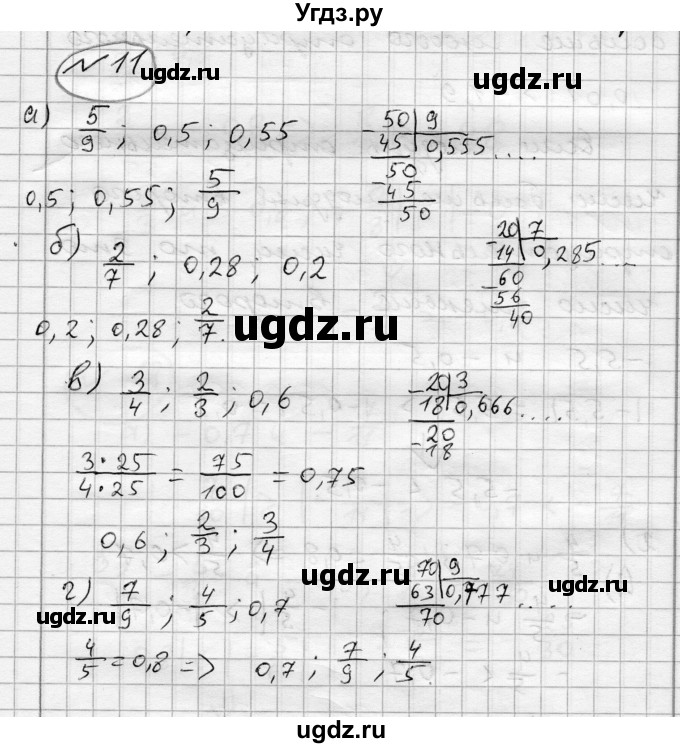 Угдз.ру
№11
ugdz.ru ugdz.ru
а) 5/9; 0,5; 0,55
50 | 9
- 45 | 0,555....
50
- 45
50
0,5; 0,55; 5/9
б) 2/7; 0,28; 0,2
- 20 | 7
14 | 0,285...
- 60
56
40
0,2; 0,28; 2/7.
ugdz.ru
в) 3/4; 2/3; 0,6
- 20 | 3
18 | 0,666....
- 20
18
3·25/4·25 = 75/100 = 0,75
0,6; 2/3; 3/4
ugdz.ru ugdz.ru
г) 7/9; 4/5; 0,7
70 | 9
63 | 0,777....
70
ugdz.ru
4/5 = 0,8 => 0,7; 7/9; 4/5.
ugdz.ru ugdz.ru
ugdz.ru